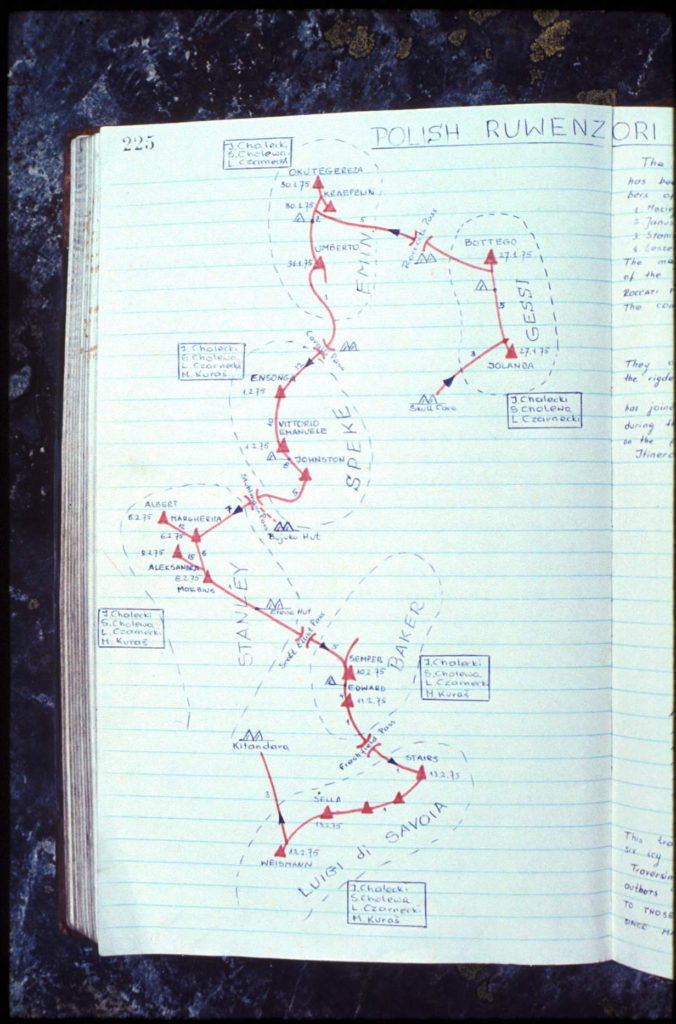 225
POLISH RUWENZORI
J. Chalecki
S. Cholewa
L. Czarnecki
OKUTEGEREZA
30.1.75
KRAEPELIN
30.1.75
2
5
Roccati Pass
UMBERTO
31.1.75
EMIN
1
BOTTEGO
27.1.75
5
GESSI
3
27.1.75
JOLANDA
Skull Cave
J. Chalecki
S. Cholewa
L. Czarnecki
J. Chalecki
S. Cholewa
L. Czarnecki
M. Kuraś
Pass
ENSONGA
1.2.75
VITTORIO
EMANUELE
1.2.75
JOHNSTON
SPEKE
Pass
Bujuku Hut
ALBERT
6.2.75
MARGHERITA
6.2.75
ALEKSANDRA
15
6
MOEBIUS
STANLEY
Elena Hut
Scott Elliot Pass
J. Chalecki
S. Cholewa
L. Czarnecki
M. Kuraś
SEMPER
10.2.75
EDWARD
11.2.75
BAKER
J. Chalecki
S. Cholewa
L. Czarnecki
M. Kuraś
Freshfield Pass
Kitandara
3
STAIRS
13.2.75
SELLA
13.2.75
WEISMANN
13.2.75
LUIGI di SAVOIA
J. Chalecki
S. Cholewa
L. Czarnecki
M. Kuraś
The
has be
bers o
1. Macie
2. Janu
3. Stan
4. Lesze
The ma
of the
ROCCATI P
The co
They
the rigde
has joine
during t
on the
Itinera
This tra
six icy
Traversin
authors
TO THOSE
ONCE MA